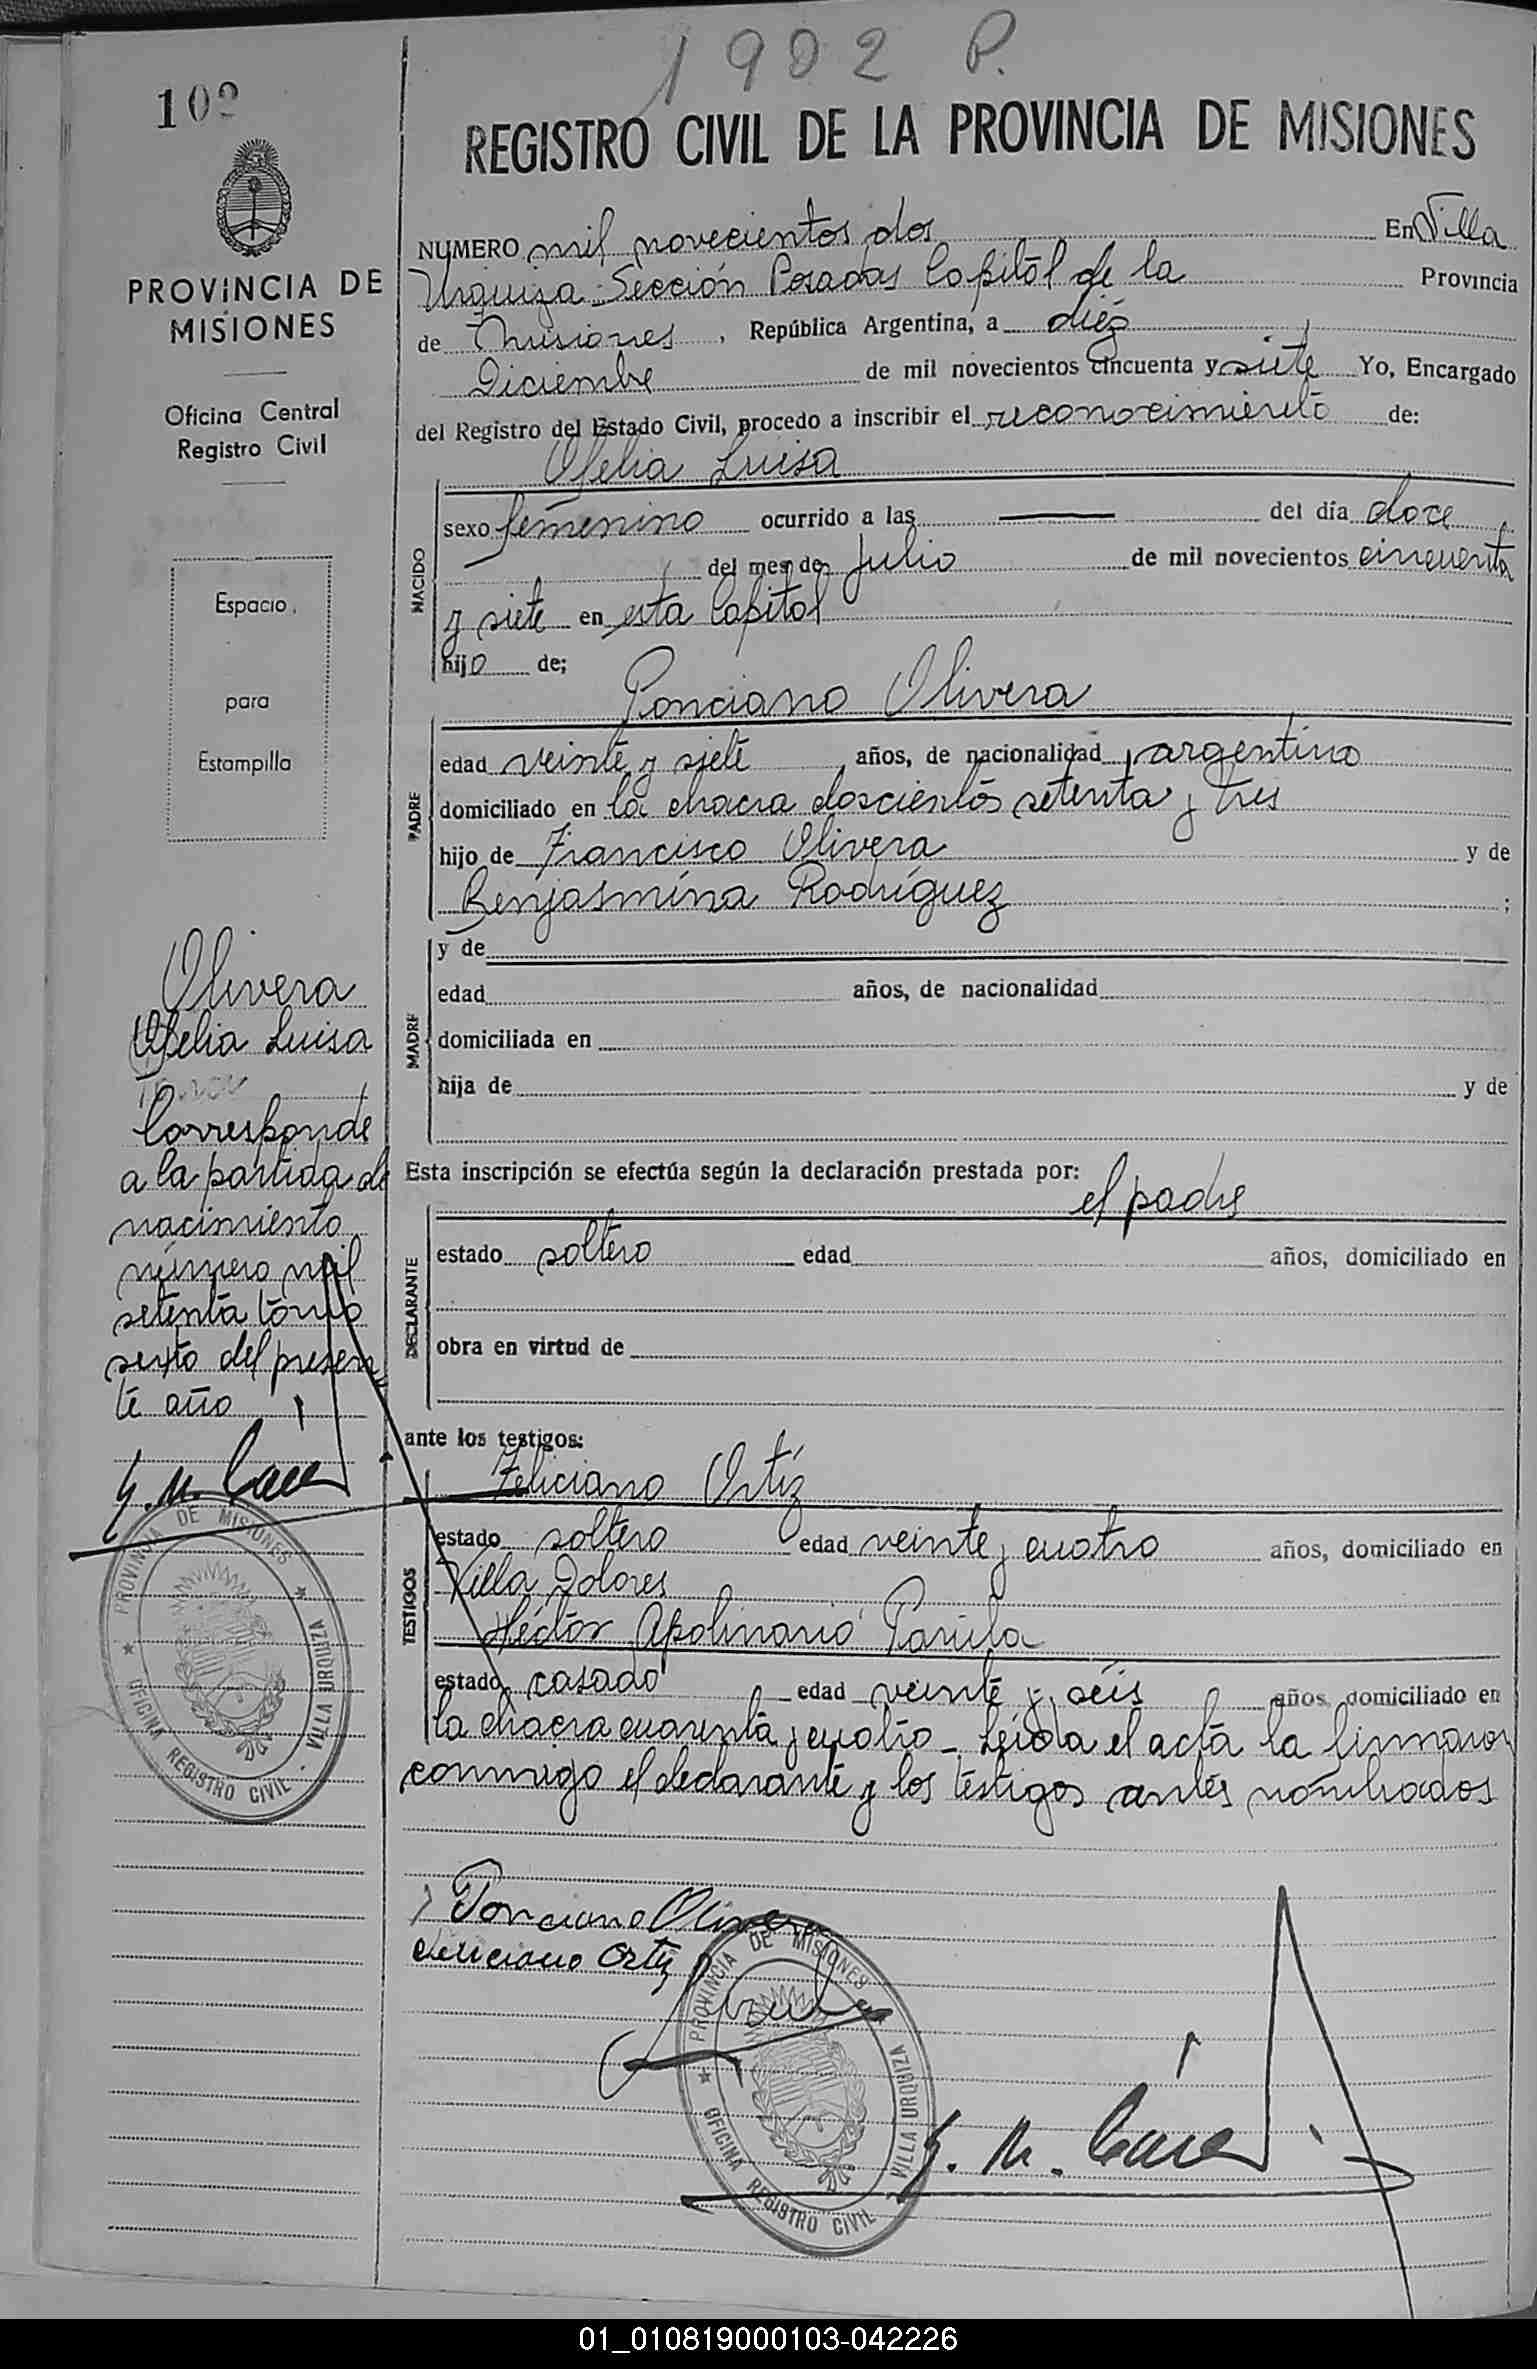 1902 P.
102
REGISTRO CIVIL DE LA PROVINCIA DE MISIONES
PROVINCIA DE
MISIONES
Oficina Central
Registro Civil
Espacio
para
Estampilla
NUMERO mil novecientos dos En Villa
Urquiza Sección Posadas Capital de la Provincia
de Misiones, República Argentina, a diéz
Diciembre de mil novecientos cincuenta y siete Yo, Encargado
del Registro del Estado Civil, procedo a inscribir el reconocimiento de:
Ofelia Luisa
NACIDO
sexo femenino ocurrido a las — del día doce
del mes de Julio de mil novecientos cincuenta
y siete en esta Capital
hijo de;
Ponciano Olivera
PADRE
edad veinte y siete años, de nacionalidad argentino
domiciliado en la chacra doscientos setenta y tres
hijo de Francisco Olivera y de
Benjasmína Rodríguez ;
MADRE
y de
edad años, de nacionalidad
domiciliada en
hija de y de
Esta inscripción se efectúa según la declaración prestada por:
el padre
DECLARANTE
estado soltero edad años, domiciliado en
obra en virtud de
ante los testigos:
Feliciano Ortíz
TESTIGOS
estado soltero edad veinte y cuatro años, domiciliado en
Villa Dolores
Héctor Apolinario Parula
estado casado edad veinte y seis años domiciliado en
la chacra cuarenta y cuatro - Leida el acta la firmaron
conmigo el declarante y los testigos antes nombrados
Olivera
Ofelia Luisa
Corresponde
a la partida de
nacimiento
número mil
setenta tomo
sexto del presen
te año
PROVINCIA DE MISIONES
VILLA URQUIZA
OFICINA REGISTRO CIVIL
Ponciano Olivera
Feliciano Ortiz
PROVINCIA DE MISIONES
VILLA URQUIZA
OFICINA REGISTRO CIVIL
01_010819000103-042226